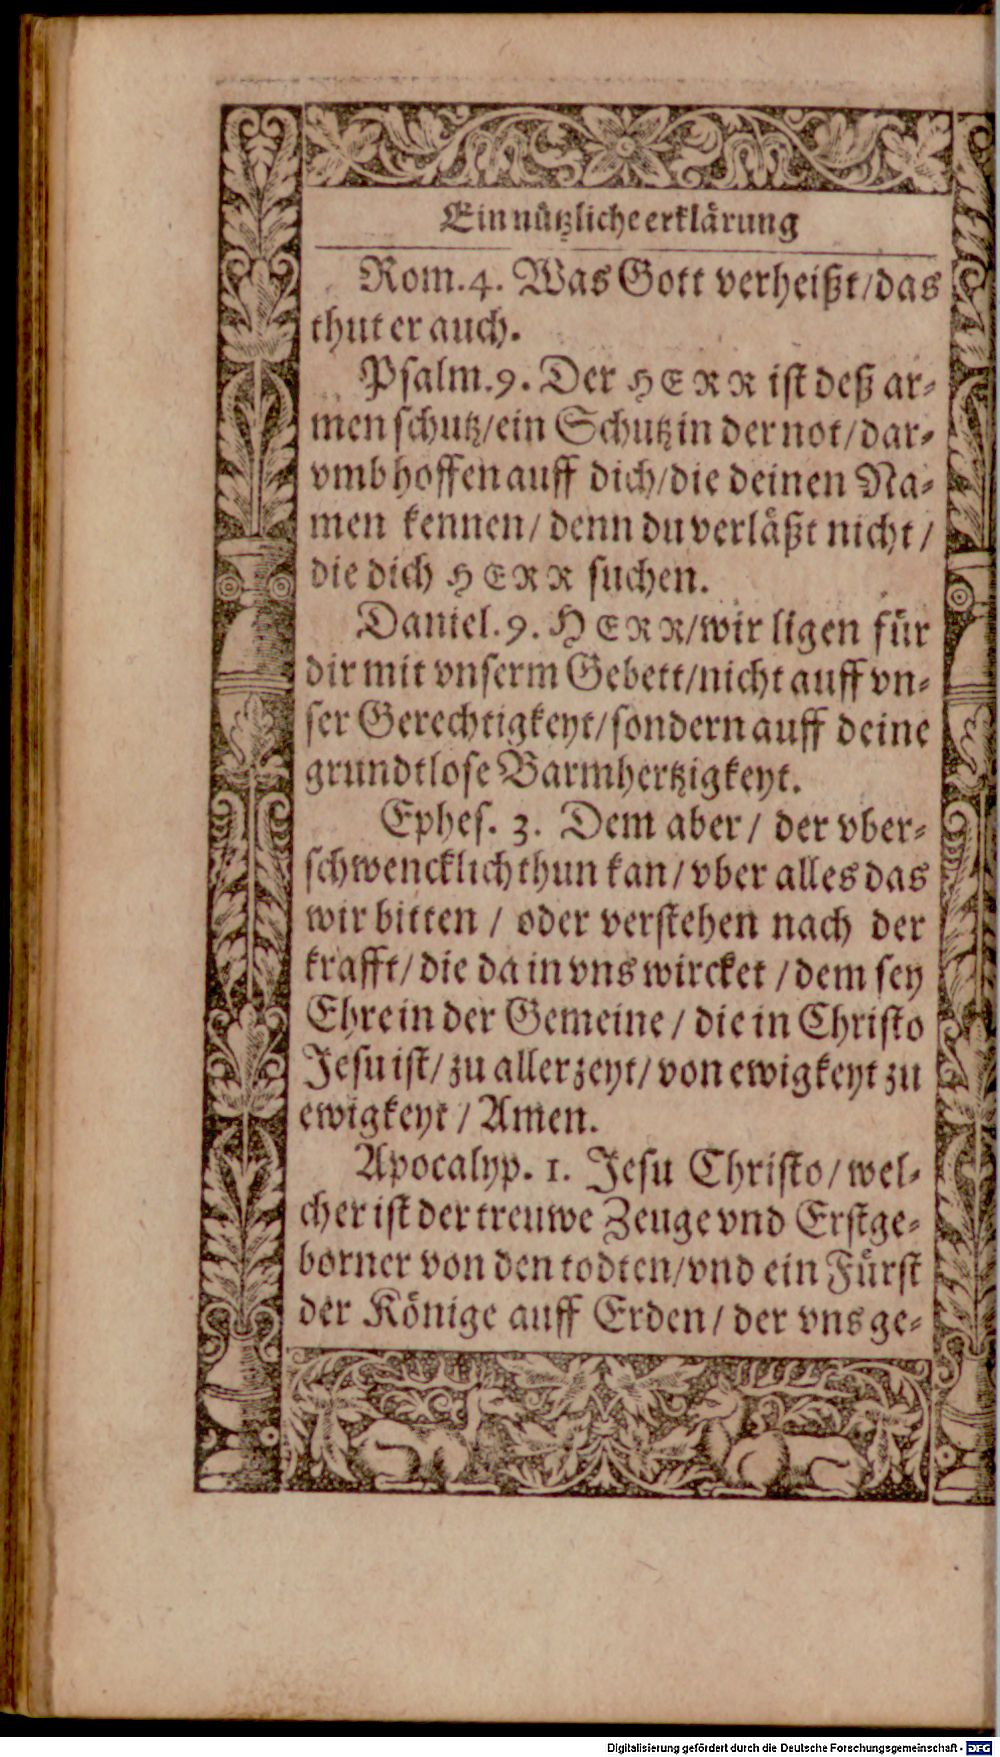 Ein nützliche erklärung
Rom. 4. Was Gott verheißt/das
thut er auch.
Psalm. 9. Der HERR ist deß ar-
men schutz/ein Schutz in der not/dar-
vmb hoffen auff dich/die deinen Na-
men kennen/ denn du verläßt nicht/
die dich HERR suchen.
Daniel. 9. HERR/wir ligen für
dir mit vnserm Gebett/nicht auff vn-
ser Gerechtigkeyt/sondern auff deine
grundtlose Barmhertzigkeyt.
Ephes. 3. Dem aber/ der vber-
schwencklich thun kan/vber alles das
wir bitten / oder verstehen nach der
krafft/die da in vns wircket /dem sey
Ehre in der Gemeine/ die in Christo
Jesu ist/zu aller zeyt/von ewigkeyt zu
ewigkeyt / Amen.
Apocalyp. 1. Jesu Christo/wel-
cher ist der treuwe Zeuge vnd Erstge-
borner von den todten/vnd ein Fürst
der Könige auff Erden/ der vns ge-
Digitalisierung gefördert durch die Deutsche Forschungsgemeinschaft - DFG